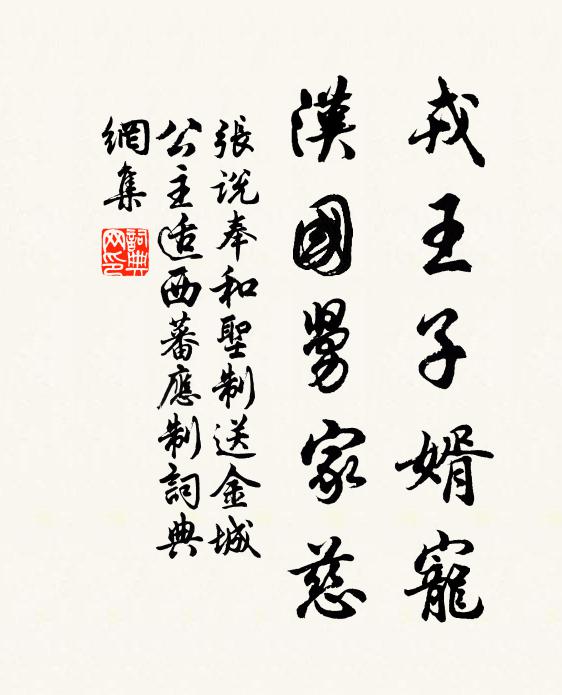 戎王子婿寵
漢國舅家慈
張說奉和聖制送金城
公主适西蕃應制詞典
網集
詞典
网印